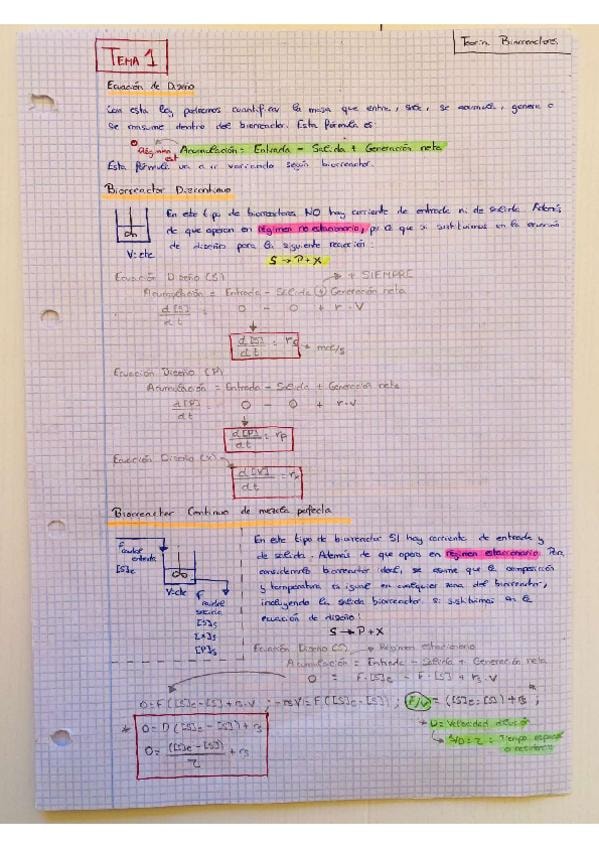 Teoría Biorreactores.
TEMA 1
Ecuación de Diseño
Con esta ley podremos cuantificar la masa que entre, sale, se acumula, genera o
se consume dentro del biorreactor. Esta fórmula es:
Acumulación = Entrada - Salida + Generación neta
Esta fórmula va a ir variando según biorreactor.
Biorreactor Discontinuo
En este tipo de biorreactores NO hay corriente de entrada ni de salida. Además
de que operan en régimen no estacionario, por que si sustituimos en la ecuación
de diseño para la siguiente reacción:
V = cte
S → P + X
Ecuación Diseño (S) → + SIEMPRE
Acumulación = Entrada - Salida + Generación neta
d[S]/dt = 0 - 0 + r · V
d[S]/dt = rs
Ecuación Diseño (P)
Acumulación = Entrada - Salida + Generación neta
d[P]/dt = 0 - 0 + r · V
d[P]/dt = rp
Ecuación Diseño (X)
dt
Biorreactor Continuo de mezcla perfecta
En este tipo de biorreactor SI hay corriente de entrada y
de salida. Además de que opera en régimen estacionario. Por,
consideramos biorreactor ideal, se asume que la composición
y temperatura es igual en cualquier zona del biorreactor,
incluyendo la salida biorreactor. Si sustituimos en la
ecuación de diseño:
F
caudal
entrada
[S]e
V=cte
F
caudal
salida
[S]s
[X]s
[P]s
S → P + X
Ecuación Diseño (S) → Régimen estacionario
Acumulación = Entrada - Salida + Generación neta
0 = F·[S]e - F·[S] + rs·V
0 = F([S]e - [S]) + rs·V ; -rs V = F([S]e - [S]) ; F/V = ([S]e - [S]) + rs ;
* 0 = D([S]e - [S]) + rs
0 = ([S]e - [S])/τ + rs
* D = Velocidad dilución
1/D = τ = Tiempo espacial
o residencia